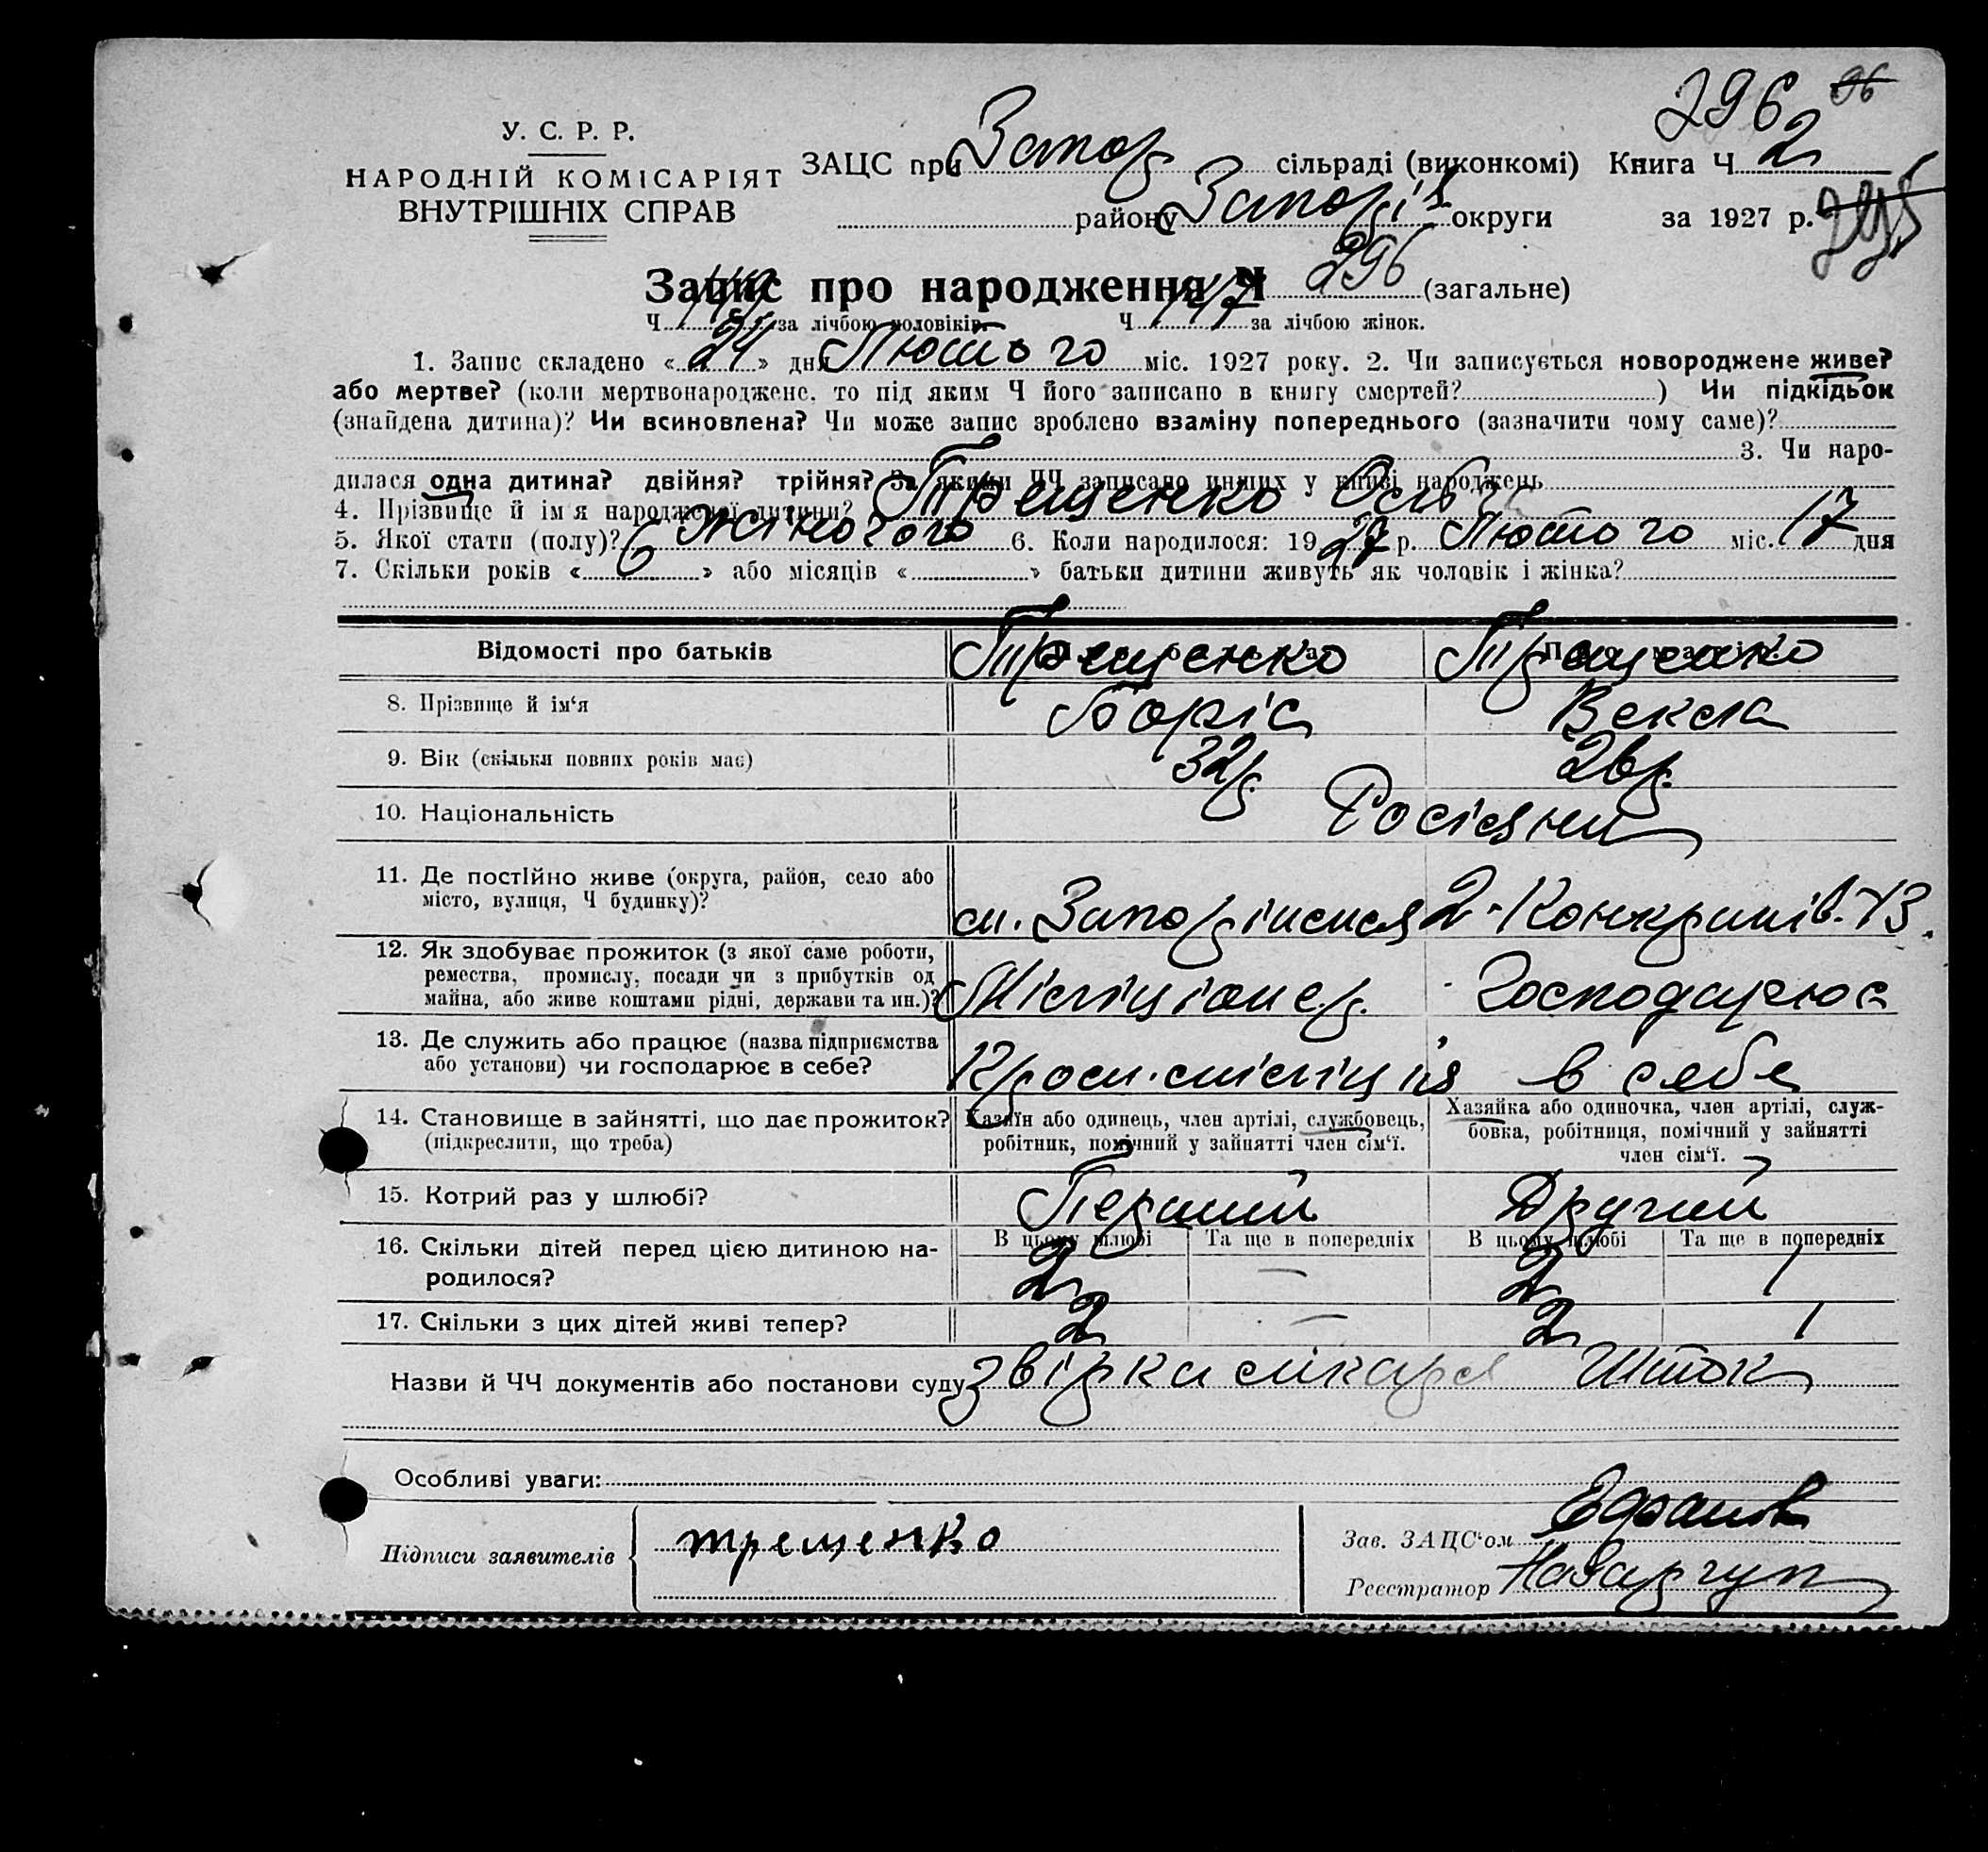 296 96
У. С. Р. Р.
НАРОДНІЙ КОМІСАРІЯТ
ВНУТРІШНІХ СПРАВ
ЗАЦС при Запор сільраді (виконкомі) Книга Ч 2
району Запоріз округи за 1927 р. 295
Запис про народження Ч 296 (загальне)
Ч 149 за лічбою чоловіків. Ч 147 за лічбою жінок.
1. Запис складено «24» дня Лютого міс. 1927 року. 2. Чи записується новороджене живе?
або мертве? (коли мертвонароджене, то під яким Ч його записано в книгу смертей? ) Чи підкідьок
(знайдена дитина)? Чи всиновлена? Чи може запис зроблено взаміну попереднього (зазначити чому саме)?
3. Чи наро-
дилася одна дитина? двійня? трійня? За якими ЧЧ записано инших у книзі народжень
4. Прізвище й ім'я народженої дитини? Трещенко
5. Якої стати (полу)? Жіночого 6. Коли народилося: 1927 р. Лютого міс. 17 дня
7. Скільки років «6» або місяців « » батьки дитини живуть як чоловік і жінка?
Відомості про батьків
Трещенко Трещенко
8. Прізвище й ім‘я Боріс Векла
9. Вік (скільки повних років має) 32 р. 26 р.
10. Національність Росіяни
11. Де постійно живе (округа, район, село або
місто, вулиця, Ч будинку)?
м. Запоріжжя 73.
12. Як здобуває прожиток (з якої саме роботи,
ремества, промислу, посади чи з прибутків од
майна, або живе коштами рідні, держави та ин.)?
Міліціонер. Господарює
13. Де служить або працює (назва підприємства
або установи) чи господарює в себе?
міліція в себе
14. Становище в зайнятті, що дає прожиток?
(підкреслити, що треба)
Хазяїн або одинець, член артілі, службовець,
робітник, помічний у зайнятті член сім‘ї.
Хазяйка або одиночка, член артілі, служ-
бовка, робітниця, помічний у зайнятті
член сім‘ї.
15. Котрий раз у шлюбі? Перший Другий
В цьому шлюбі Та ще в попередніх В цьому шлюбі Та ще в попередніх
16. Скільки дітей перед цією дитиною на-
родилося?
2 — 2 1
17. Скільки з цих дітей живі тепер? 2 — 2 1
Назви й ЧЧ документів або постанови суду лікаря Шток
Особливі уваги:
Підписи заявителів трещенко
Зав. ЗАЦС‘ом
Реєстратор